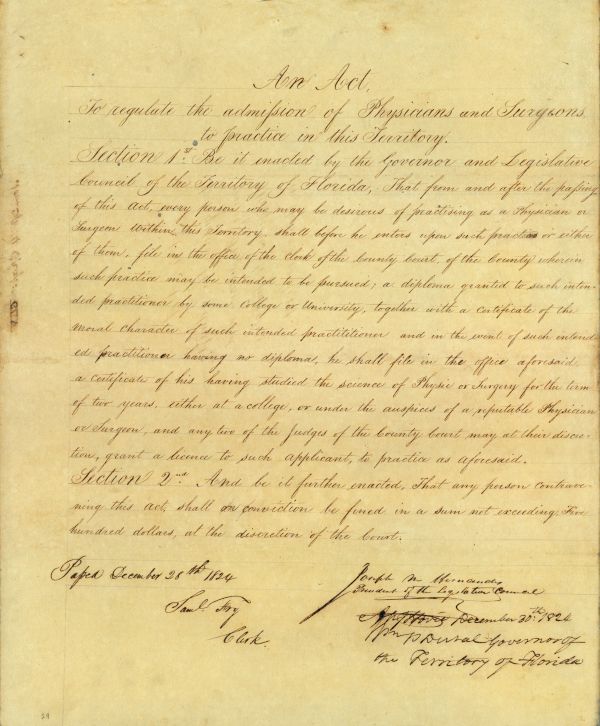 An Act,
To regulate the admission of Physicians and Surgeons,
to practice in this Territory.
Section 1st. Be it enacted by the Governor and Legislative
Council of the Territory of Florida, That from and after the passing
of this Act, every person who may be desirous of practising as a Physician or
Surgeon Within this Territory, shall before he enters upon such practice or either
of them, file in the office of the clerk of the County Court, of the County wherein
such practice may be intended to be pursued; a diploma granted to such inten-
ded practitioner by some College or University, together with a certificate of the
moral character of such intended practititioner and in the event of such intend-
ed practitioner having no diploma, he shall file in the office aforesaid
a certificate of his having studied the science of Physic or Surgery for the term
of two years, either at a college, or under the auspices of a reputable Physician
or Surgeon, and any two of the Judges of the County Court may at their discre-
tion, grant a licence to such applicant, to practice as aforesaid.
Section 2nd. And be it further enacted, That any person contrave-
ning this act, shall on conviction be fined in a sum not exceeding Five
hundred dollars, at the discretion of the Court.
Passed December 28th 1824
Joseph M Hernandez
President of the Legislative Council
Saml. Fry
Clerk
December 30th 1824
Wm P Duval Governor of
the Territory of Florida
29